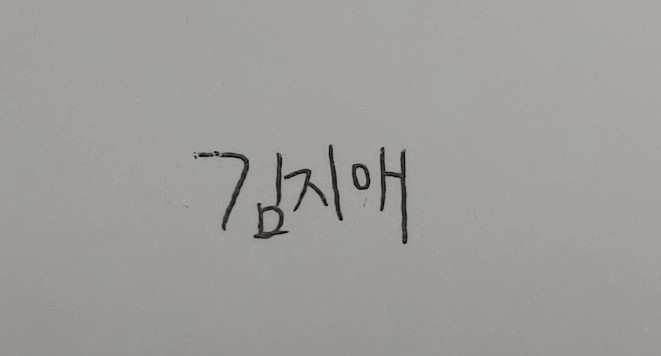 김지애